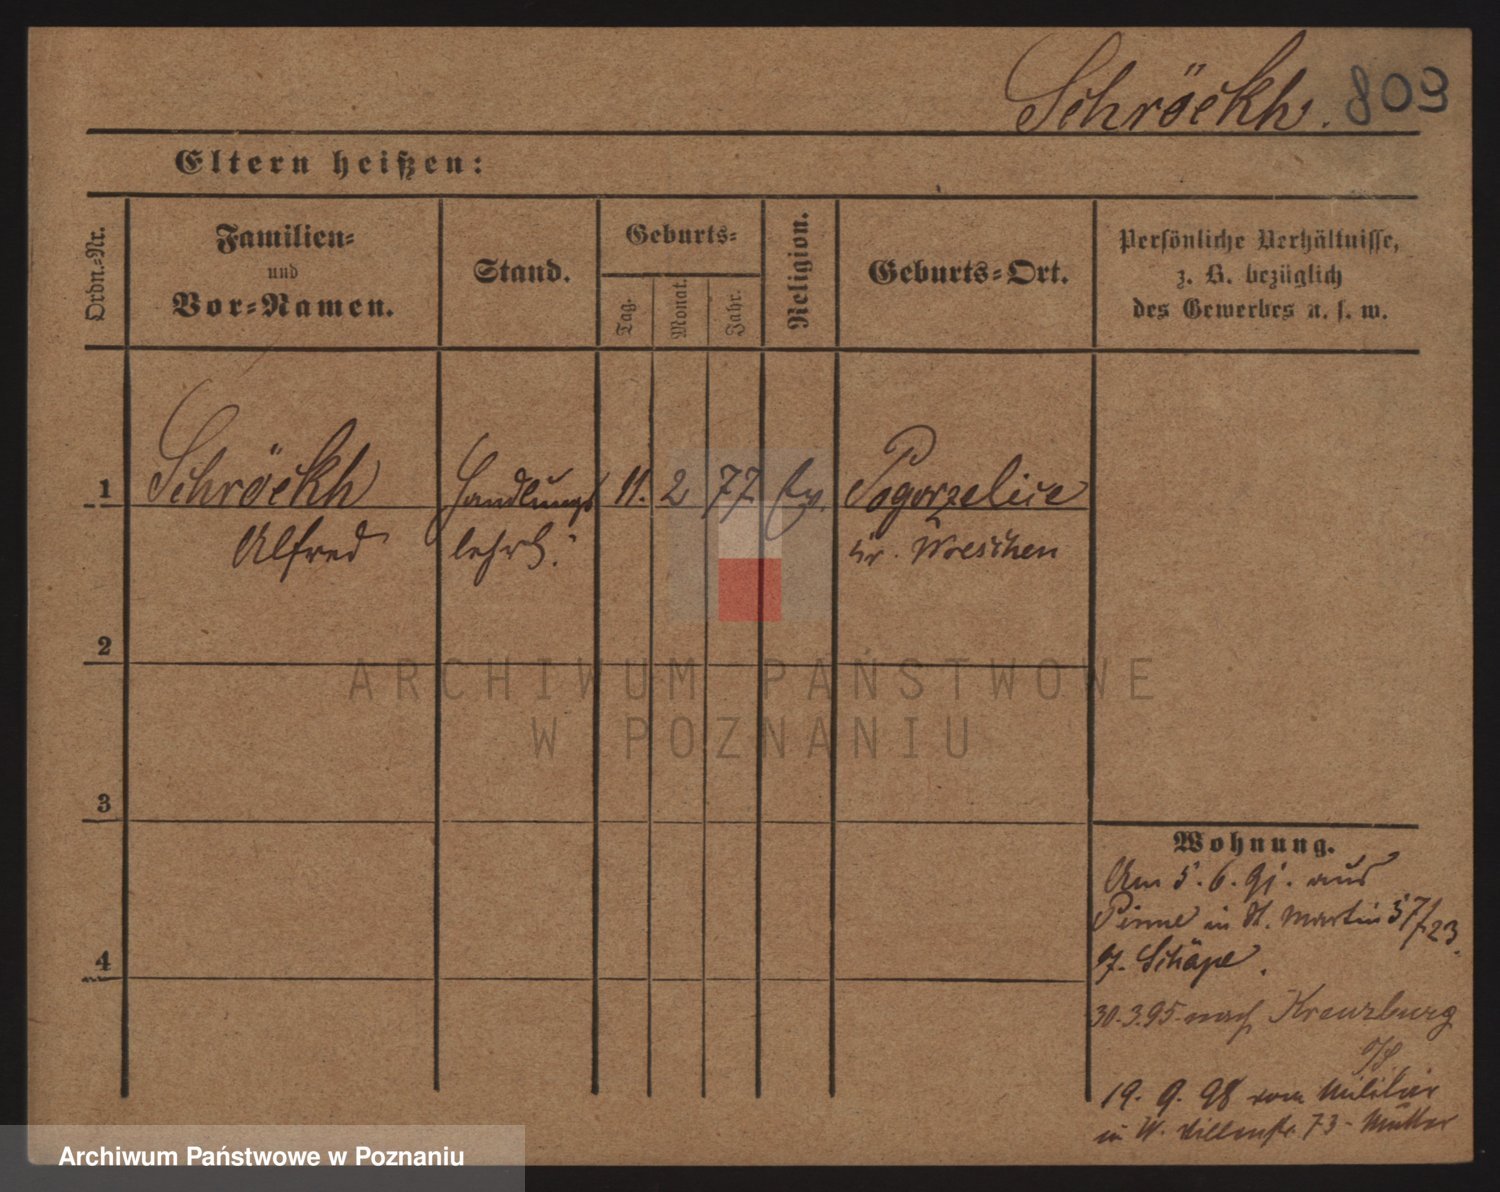 Schröckh. 803
Eltern heißen:
Ordn.-Nr.
Familien-
und
Vor-Namen.
Stand.
Geburts-
Tag.
Monat.
Jahr.
Religion.
Geburts-Ort.
Persönliche Verhältnisse,
z. B. bezüglich
des Gewerbes u. s. w.
1 Schröckh Handlungs 11. 2 77 Ev. Pogorzelice
Alfred lehrl. Kr. Wreschen
2
3
4
Wohnung.
Am 5. 6. 91. aus
Pinne in St. Martin 57/23.
Schäpe.
30.3.95 nach Kreuzburg
O/S
19. 9. 98 vom Militär
in W. 73 - Mutter
ARCHIWUM PAŃSTWOWE
W POZNANIU
Archiwum Państwowe w Poznaniu